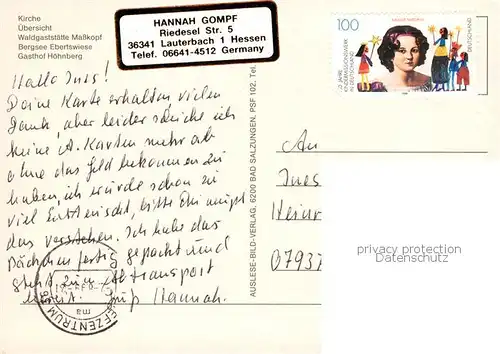 Kirche
Übersicht
Waldgaststätte Maßkopf
Bergsee Ebertswiese
Gasthof Höhnberg
HANNAH GOMPF
Riedesel Str. 5
36341 Lauterbach 1 Hessen
Telef. 06641-4512 Germany
100
DEUTSCHLAND
KINDERMISSIONSWERK
IN DEUTSCHLAND
Hallo Ines!
Deine Karte erhalten vielen
Dank, aber leider schicke ich
keine A. Karten mehr ab
ohne das Geld bekommen zu
haben, ich würde schon zu
viel enttäuscht, bitte Du musst
das verstehen. Ich habe das
Päckchen fertig gepackt und
steht zum Abtransport
bereit. Gruß Hannah.
AUSLESE-BILD-VERLAG, 6200 BAD SALZUNGEN, PSF 102, Tel.
An
Ines
Heinr
07937
privacy protection
Datenschutz
BRIEFZENTRUM
ma